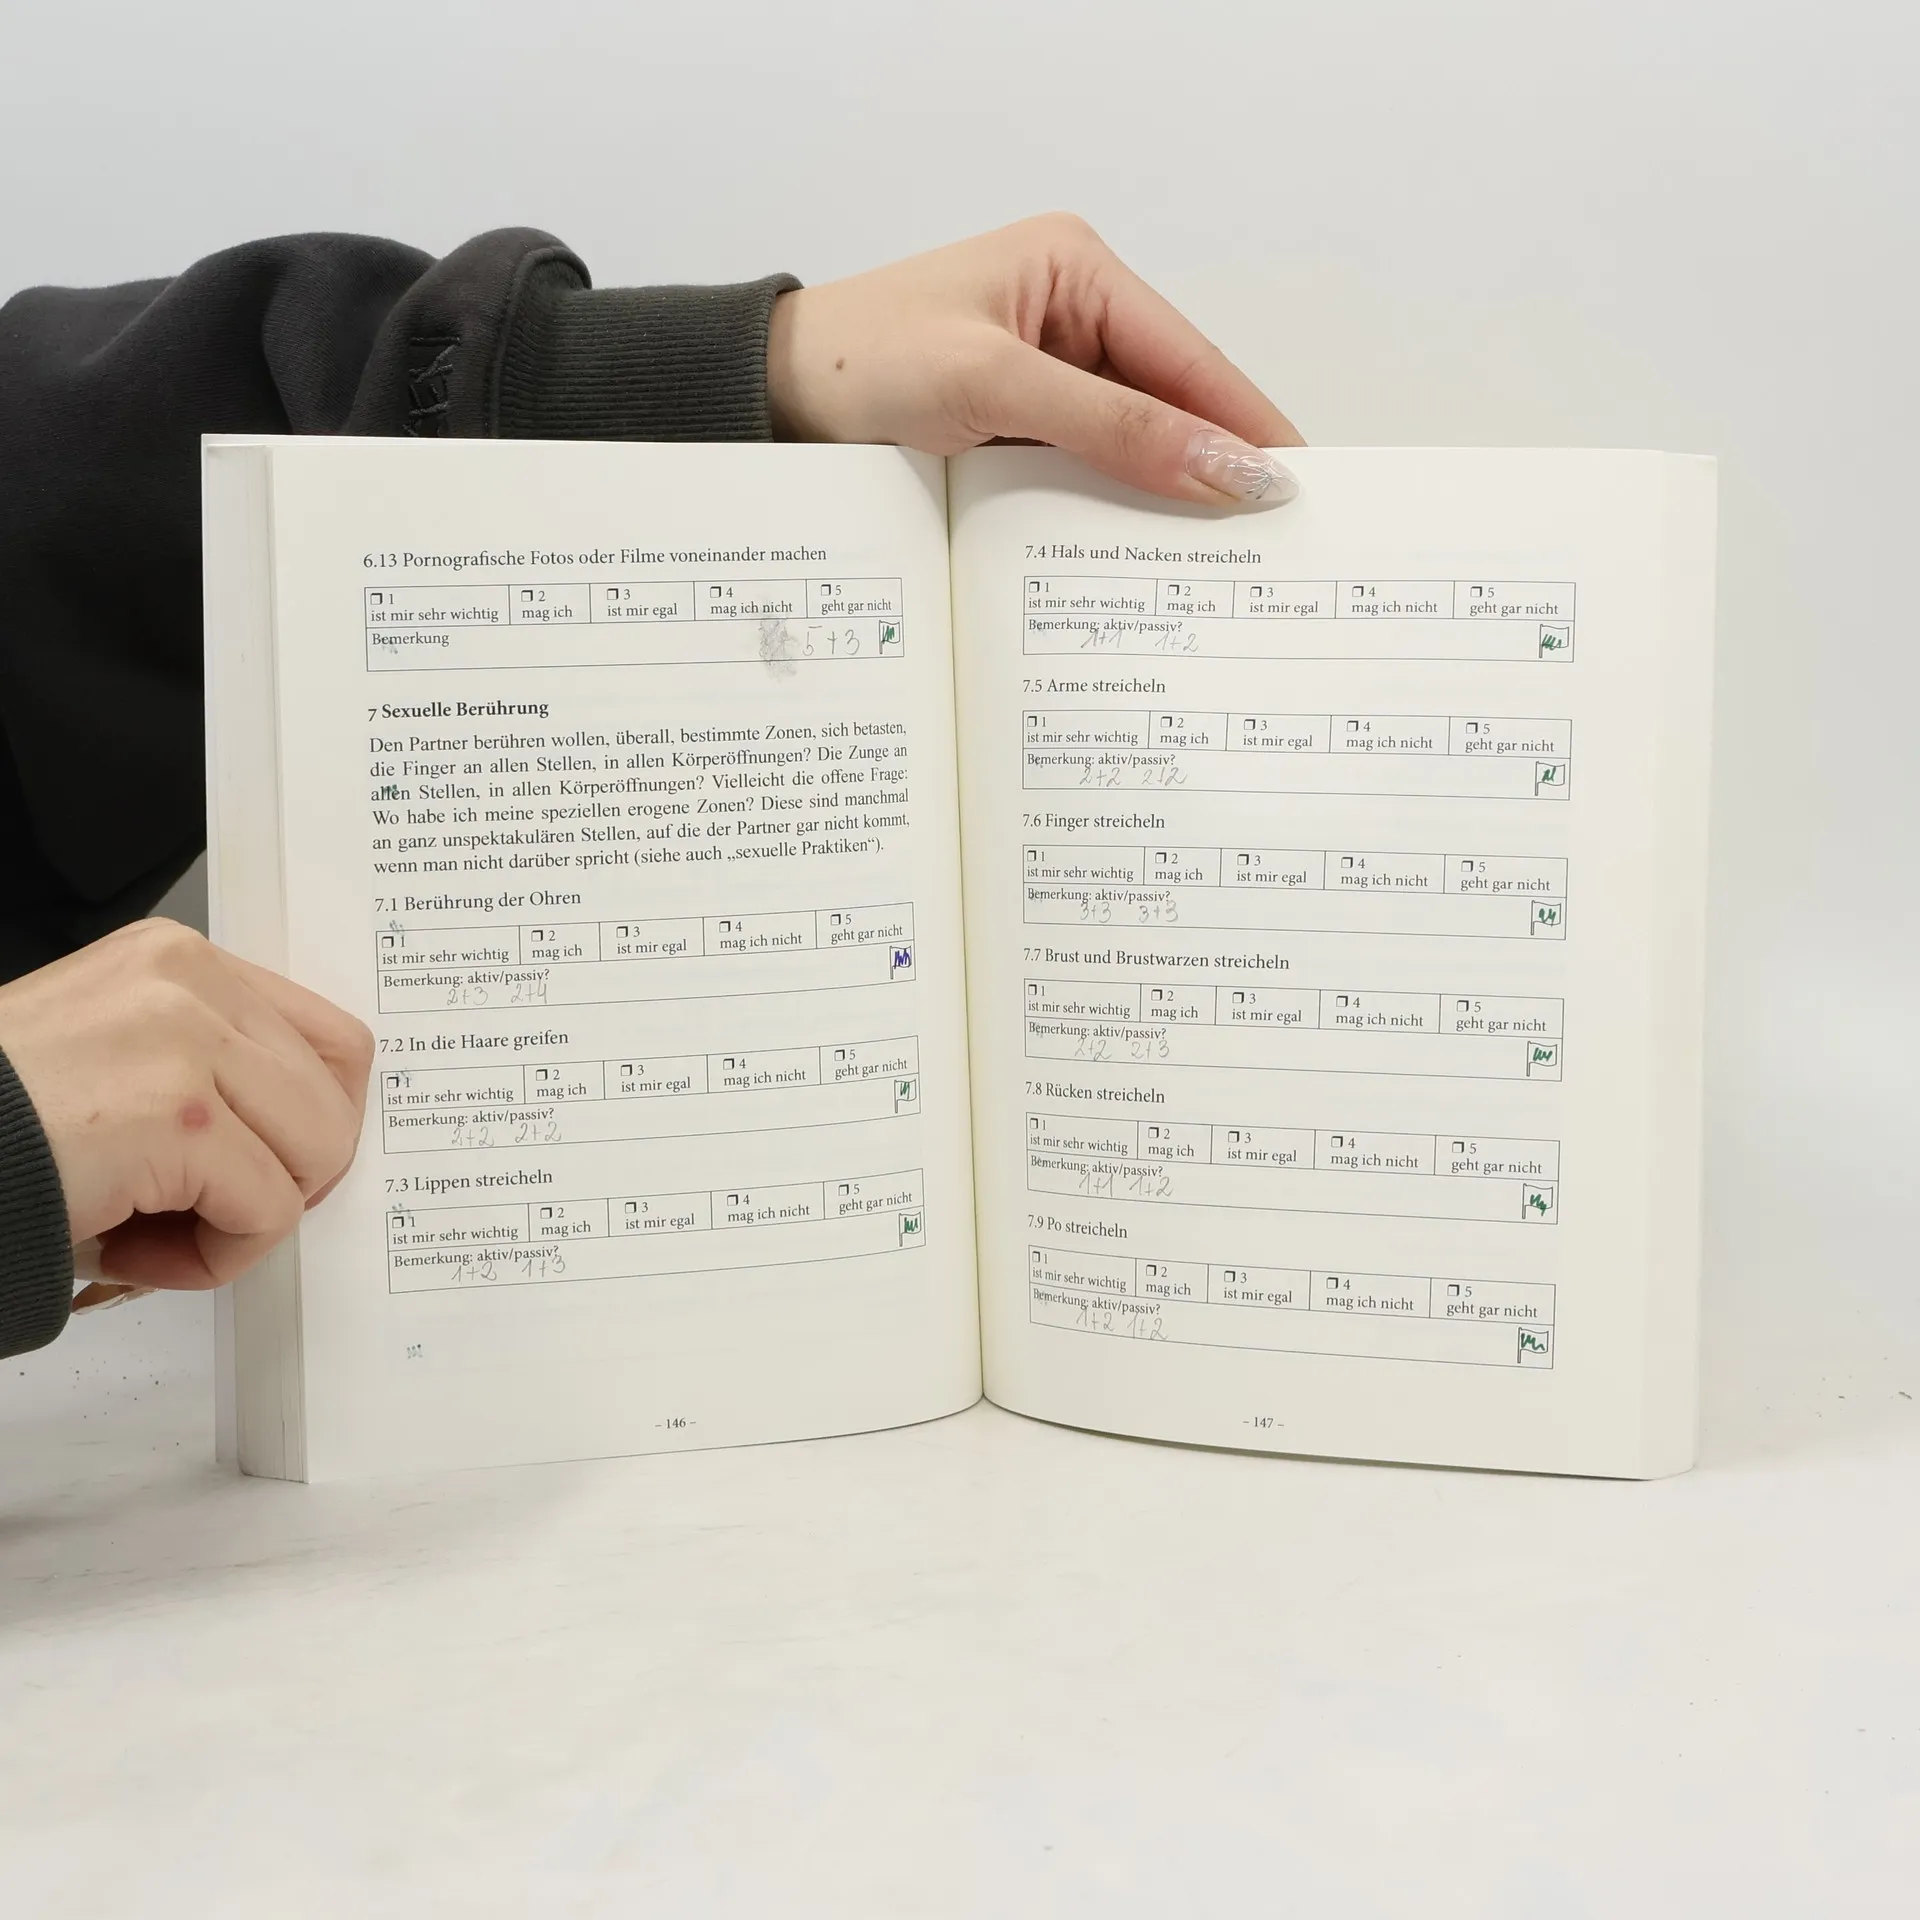 6.13 Pornografische Fotos oder Filme voneinander machen
1 2 3 4 5
ist mir sehr wichtig mag ich ist mir egal mag ich nicht geht gar nicht
Bemerkung 5+3
7 Sexuelle Berührung
Den Partner berühren wollen, überall, bestimmte Zonen, sich betasten,
die Finger an allen Stellen, in allen Körperöffnungen? Die Zunge an
allen Stellen, in allen Körperöffnungen? Vielleicht die offene Frage:
Wo habe ich meine speziellen erogene Zonen? Diese sind manchmal
an ganz unspektakulären Stellen, auf die der Partner gar nicht kommt,
wenn man nicht darüber spricht (siehe auch „sexuelle Praktiken“).
7.1 Berührung der Ohren
1 2 3 4 5
ist mir sehr wichtig mag ich ist mir egal mag ich nicht geht gar nicht
Bemerkung: aktiv/passiv?
2+3 2+4
7.2 In die Haare greifen
1 2 3 4 5
ist mir sehr wichtig mag ich ist mir egal mag ich nicht geht gar nicht
Bemerkung: aktiv/passiv?
2+2 2+2
7.3 Lippen streicheln
1 2 3 4 5
ist mir sehr wichtig mag ich ist mir egal mag ich nicht geht gar nicht
Bemerkung: aktiv/passiv?
1+2 1+3
– 146 –
7.4 Hals und Nacken streicheln
1 2 3 4 5
ist mir sehr wichtig mag ich ist mir egal mag ich nicht geht gar nicht
Bemerkung: aktiv/passiv?
1+1 1+2
7.5 Arme streicheln
1 2 3 4 5
ist mir sehr wichtig mag ich ist mir egal mag ich nicht geht gar nicht
Bemerkung: aktiv/passiv?
2+2 2+2
7.6 Finger streicheln
1 2 3 4 5
ist mir sehr wichtig mag ich ist mir egal mag ich nicht geht gar nicht
Bemerkung: aktiv/passiv?
3+3 3+3
7.7 Brust und Brustwarzen streicheln
1 2 3 4 5
ist mir sehr wichtig mag ich ist mir egal mag ich nicht geht gar nicht
Bemerkung: aktiv/passiv?
2+2 2+3
7.8 Rücken streicheln
1 2 3 4 5
ist mir sehr wichtig mag ich ist mir egal mag ich nicht geht gar nicht
Bemerkung: aktiv/passiv?
1+1 1+2
7.9 Po streicheln
1 2 3 4 5
ist mir sehr wichtig mag ich ist mir egal mag ich nicht geht gar nicht
Bemerkung: aktiv/passiv?
1+2 1+2
– 147 –